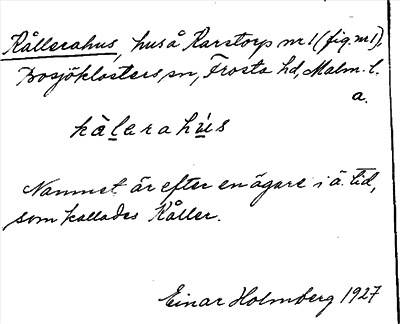 Kållerahus, hus å Karstorp nr 1 (fig. nr 1),
Bosjöklosters sn, Frosta hd, Malm. l.
a.
kålerahús
Namnet är efter en ägare i ä. tid,
som kallades Kåller.
Einar Holmberg 1927